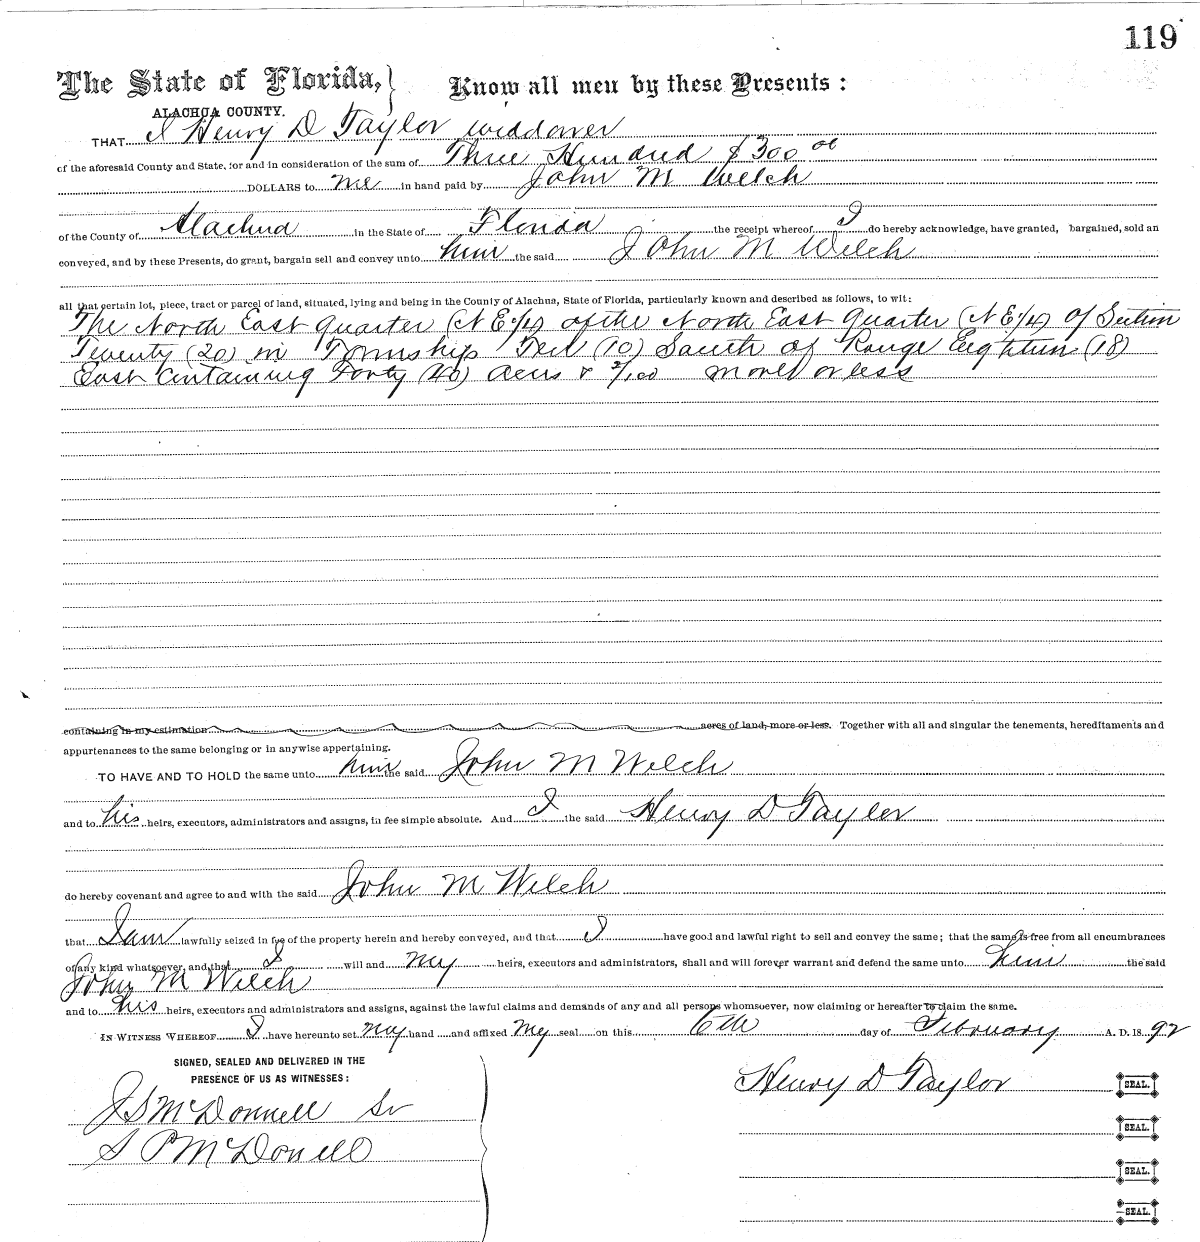 119
The State of Florida, } Know all men by these Presents:
ALACHUA COUNTY.
THAT I Henry D Taylor widdower
of the aforesaid County and State, for and in consideration of the sum of Three Hundred $300 00
DOLLARS to me in hand paid by John M Welch
of the County of Alachua in the State of Florida the receipt whereof I do hereby acknowledge, have granted, bargained, sold an
conveyed, and by these Presents, do grant, bargain sell and convey unto him the said John M Welch
all that certain lot, piece, tract or parcel of land, situated, lying and being in the County of Alachua, State of Florida, particularly known and described as follows, to wit:
The North East Quarter (N E 1/4) of the North East Quarter (N E 1/4) of Section
Twenty (20) in Township Ten (10) South of Range Eighteen (18)
East Containing Forty (40) acres & 2/100 more or less
containing in my estimation acres of land, more or less. Together with all and singular the tenements, hereditaments and
appurtenances to the same belonging or in anywise appertaining.
TO HAVE AND TO HOLD the same unto him the said John M Welch
and to his heirs, executors, administrators and assigns, in fee simple absolute. And I the said Henry D Taylor
do hereby covenant and agree to and with the said John M Welch
that I am lawfully seized in fee of the property herein and hereby conveyed, and that I have good and lawful right to sell and convey the same; that the same is free from all encumbrances
of any kind whatsoever, and that I will and my heirs, executors and administrators, shall and will forever warrant and defend the same unto him the said
John M Welch
and to his heirs, executors and administrators and assigns, against the lawful claims and demands of any and all persons whomsoever, now claiming or hereafter to claim the same.
IN WITNESS WHEREOF I have hereunto set my hand and affixed my seal on this 6th day of February A. D. 18 92
SIGNED, SEALED AND DELIVERED IN THE
PRESENCE OF US AS WITNESSES:
Henry D Taylor SEAL.
J S McDonnell Sr
SEAL.
S P McDonell
SEAL.
SEAL.